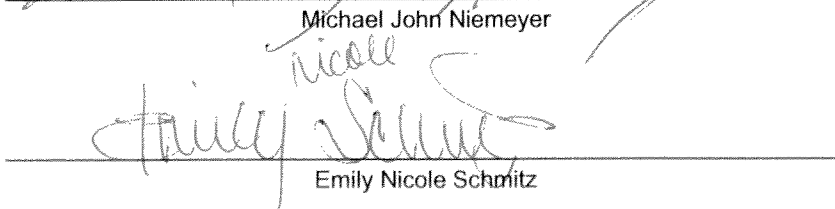 Michael John Niemeyer
Nicole
Emily Schmitz
Emily Nicole Schmitz